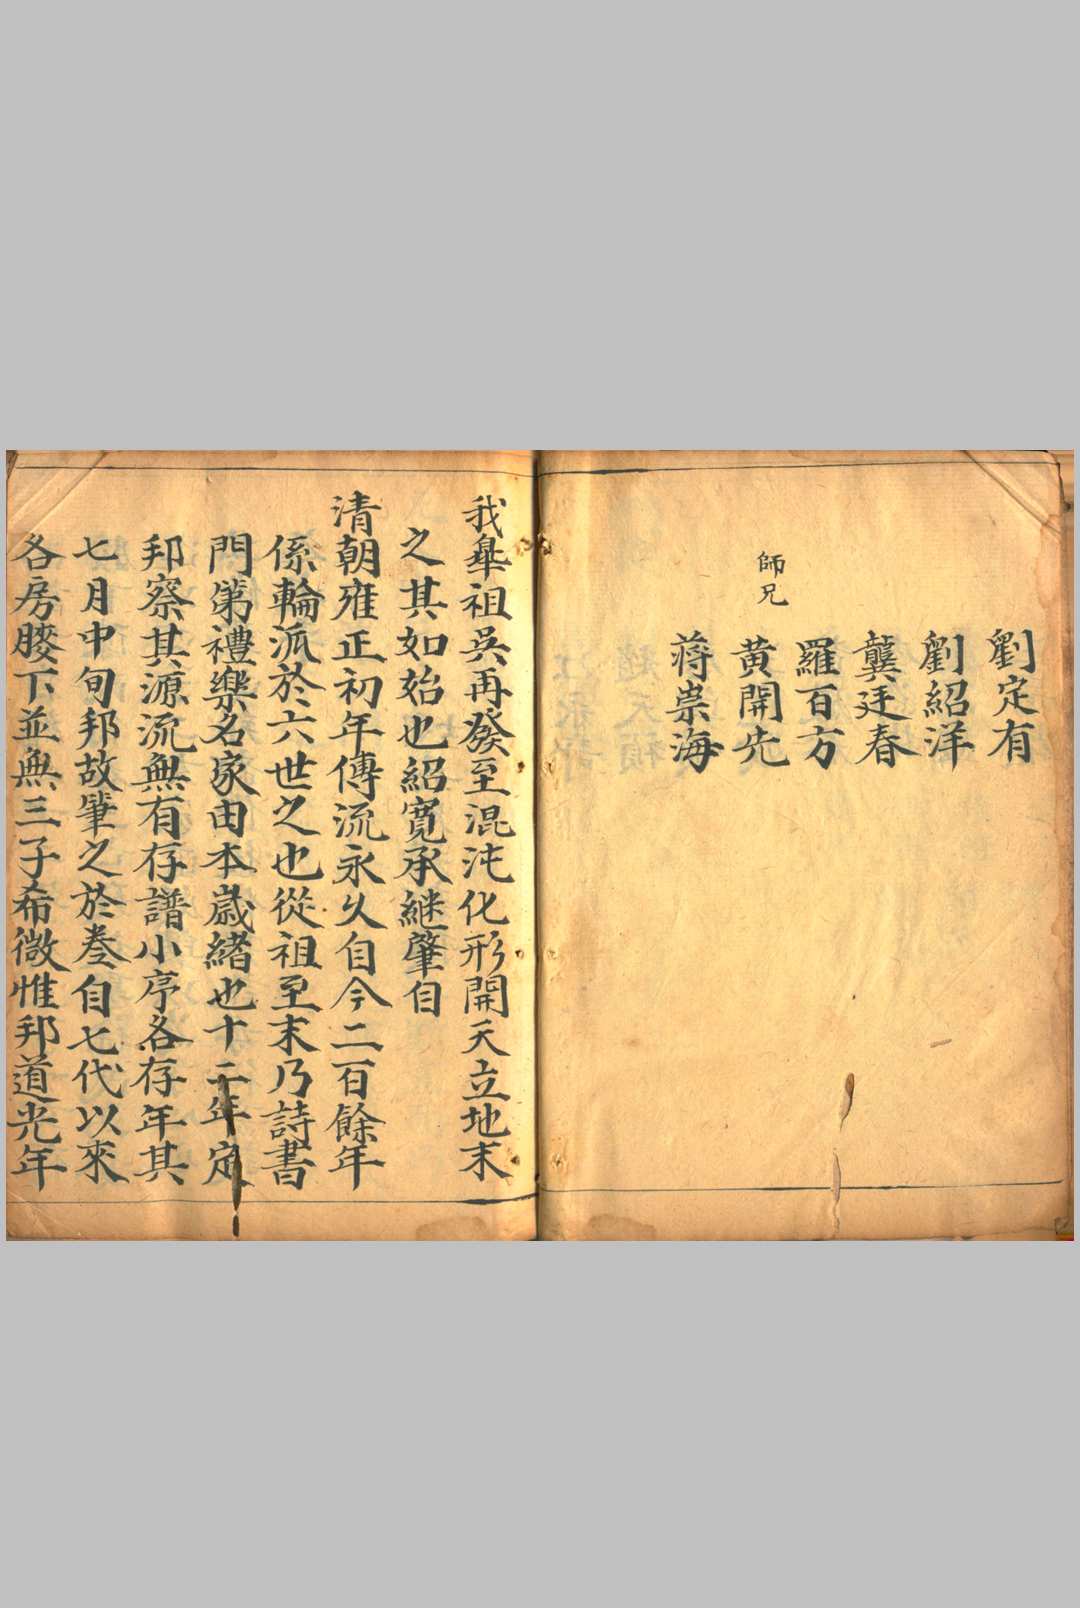 劉定有
劉紹洋
龔廷春
羅百方
師兄
黄開先
蒋崇海
我臯祖吳再發至混沌化形開天立地末
之其如始也紹寬承継肇自
清朝雍正初年傳流永久自今二百餘年
係輪派於六世之也從祖至末乃詩書
門第禮樂名家由本嵗緒也十二年定
邦察其源流無有存譜小序各存年其
七月中旬邦故肇之於巻自七代以來
各房膄下並無三子希微惟邦道光年